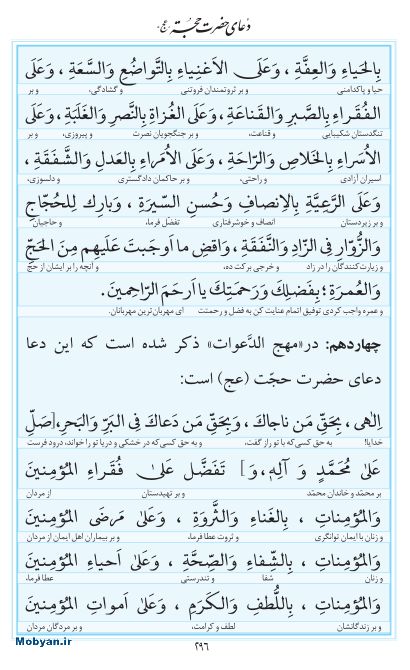 دعای حضرت حجّت (عج)
بِالحَیاءِ وَالعِفَّةِ ، وَعَلَی الاَغنِیاءِ بِالتَّواضُعِ وَالسَّعَةِ ، وَعَلَی
حیا و پاکدامنی و بر ثروتمندان فروتنی و گشادگی، و بر
الفُقَراءِ بِالصَّبرِ وَالقَناعَةِ، وَعَلَی الغُزاةِ بِالنَّصرِ وَالغَلَبَةِ، وَعَلَی
تنگدستان شکیبایی و قناعت، و بر جنگجویان نصرت و پیروزی، و بر
الاُسَراءِ بِالخَلاصِ وَالرّاحَةِ، وَعَلَی الاُمَراءِ بِالعَدلِ وَالشَّفَقَةِ ،
اسیران آزادی و راحتی، و بر حاکمان دادگستری و دلسوزی،
وَعَلَی الرَّعِیَّةِ بِالاِنصافِ وَحُسنِ السّیرَةِ ، وَبارِك لِلحُجّاجِ
و بر زیردستان انصاف و خوشرفتاری تفضّل فرما، و حاجیان
وَالزُّوّارِ فِی الزّادِ وَالنَّفَقَةِ، وَاقضِ ما اَوجَبتَ عَلَیهِم مِنَ الحَجِّ
و زیارت‌کنندگان را در زاد و خرجی برکت ده، و آنچه را بر ایشان از حج
وَالعُمرَةِ؛ بِفَضلِكَ وَرَحمَتِكَ یا اَرحَمَ الرّاحِمینَ.
و عمره واجب کردی توفیق اتمام عنایت کن به فضل و رحمتت ای مهربان‌ترین مهربانان.
چهاردهم: در «مهج الدَّعوات» ذکر شده است که این دعا
دعای حضرت حجّت (عج) است:
اِلٰهی، بِحَقِّ مَن ناجاكَ، وَبِحَقِّ مَن دَعاكَ فِی البَرِّ وَالبَحرِ، [صَلِّ
خدایا! به حق کسی‌که با تو راز گفت، و به حق کسی‌که در خشکی و دریا تو را خواند، درود فرست
عَلیٰ مُحَمَّدٍ وَ آلِهِ، وَ] تَفَضَّل عَلیٰ فُقَراءِ المُؤمِنینَ
بر محمّد و خاندان محمّد و بر تهیدستان از مردان
وَالمُؤمِناتِ ، بِالغَناءِ وَالثَّروَةِ ، وَعَلیٰ مَرضَی المُؤمِنینَ
و زنان با ایمان توانگری و ثروت عطا فرما، و بر بیماران اهل ایمان از مردان
وَالمُؤمِناتِ ، بِالشِّفاءِ وَالصِّحَّةِ ، وَعَلیٰ اَحیاءِ المُؤمِنینَ
و زنان شفا و تندرستی عطا فرما،
وَالمُؤمِناتِ ، بِاللُّطفِ وَالکَرَمِ ، وَعَلیٰ اَمواتِ المُؤمِنینَ
و بر زندگانشان لطف و کرامت، و بر مردگان مردان
۲۹۶
Mobyan.ir